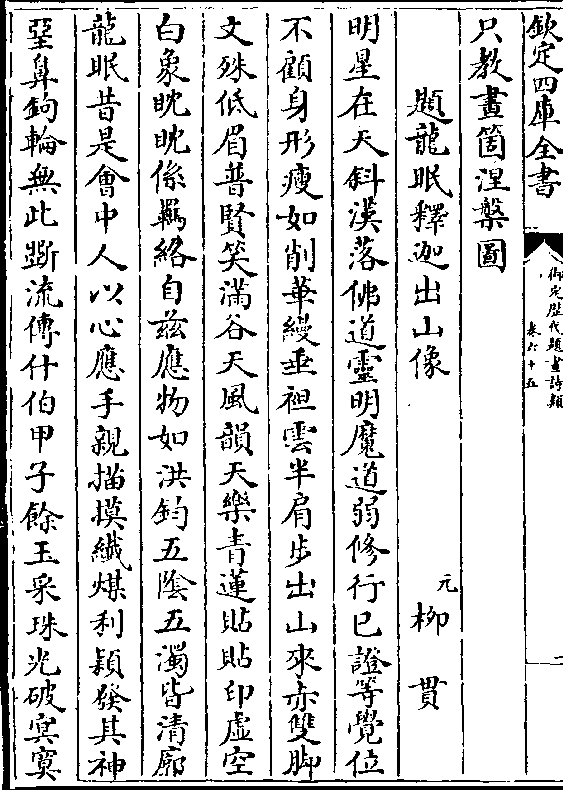 欽定四庫全書
御定歷代題畫詩類
卷六十五
一
只教畫箇涅槃圖
題龍眠釋迦出山像
元
柳貫
明星在天斜漢落佛道靈明魔道弱修行已證等覺位
不顧身形瘦如削華縵垂袒雲半肩步出山來赤雙脚
文殊低眉普賢笑滿谷天風韻天樂青蓮貼貼印虛空
白象眈眈係羈絡自兹應物如洪鈞五陰五濁皆清廓
龍眠昔是會中人以心應手親描摸纎煤利穎發其神
堊鼻鉤輪無此斵流傳什伯甲子餘玉采珠光破冥寞